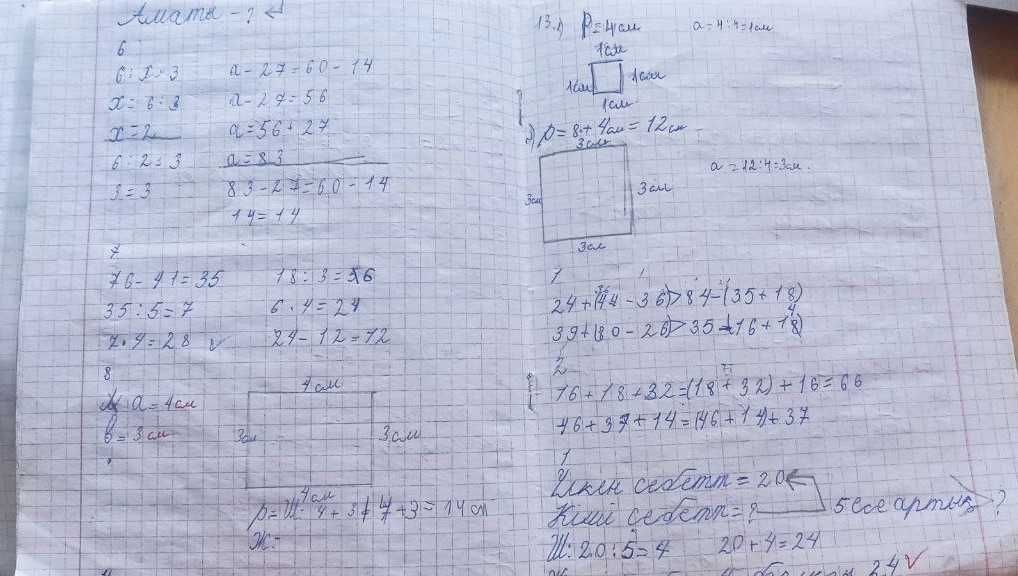 Алматы - ?
6
6 : x = 3
x = 6 : 3
x = 2
6 : 2 = 3
3 = 3
a - 27 = 60 - 14
a - 27 = 56
a = 56 + 27
a = 83
83 - 27 = 60 - 14
14 = 14
7
76 - 41 = 35
35 : 5 = 7
7 · 4 = 28
18 : 3 = 6
6 · 4 = 24
24 - 12 = 12
8
a = 4 см
b = 3 см
4 см
3 см
3 см
4 см
p = Ш: 4 + 3 + 4 + 3 = 14 см
Ж:
13. 1) P = 4 см
a = 4 : 4 = 1 см
1 см
1 см
1 см
1 см
2) p = 8 + 4 см = 12 см
a = 12 : 4 = 3 см.
3 см
3 см
3 см
3 см
1
24 + (44 - 36) > 84 - (35 + 18)
39 + (80 - 26) > 35 - (16 + 18)
2
16 + 18 + 32 = (18 + 32) + 16 = 66
46 + 37 + 14 = (46 + 14) + 37
1
Үлкен себетт = 20
Кіші себетт = ?
5 есе артық
?
Ш: 20 : 5 = 4
20 + 4 = 24
24